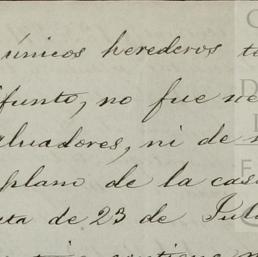 únicos herederos te
funto, no fue ne
luadores, ni de
plano de la cas
ta de 23 de Jul